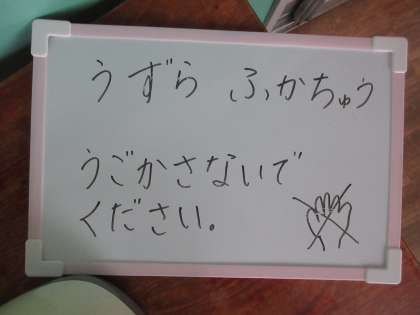 うずら ふかちゅう
うごかさないで
ください。